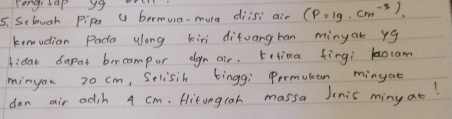 Pengisap yg
5. Sebuah Pipa U bermula-mula diisi air (P=1g.cm⁻³).
kemudian Pada ujong kiri dituangkan minyak yg
tidak dapat bercampur dgn air. Ketika tinggi kolom
minyak 20 cm, Selisih tinggi Permukaan minyak
dan air adlh 4 cm. Hitunglah massa Jenis minyak!